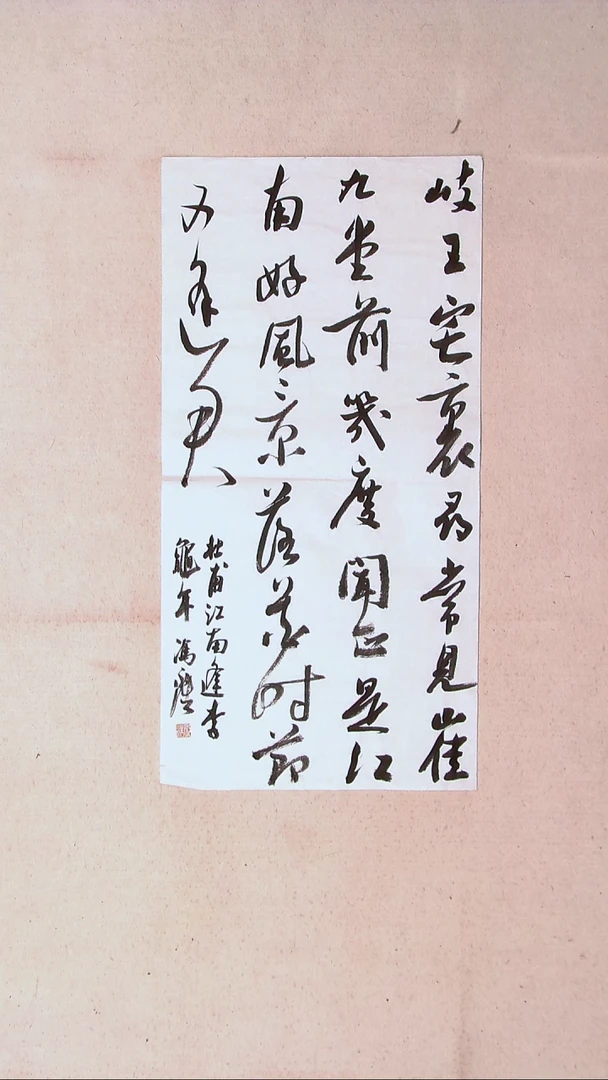 岐王宅裏尋常見崔
九堂前幾度聞正是江
南好風景落花時節
又逢君
杜甫江南逢李
龜年馮